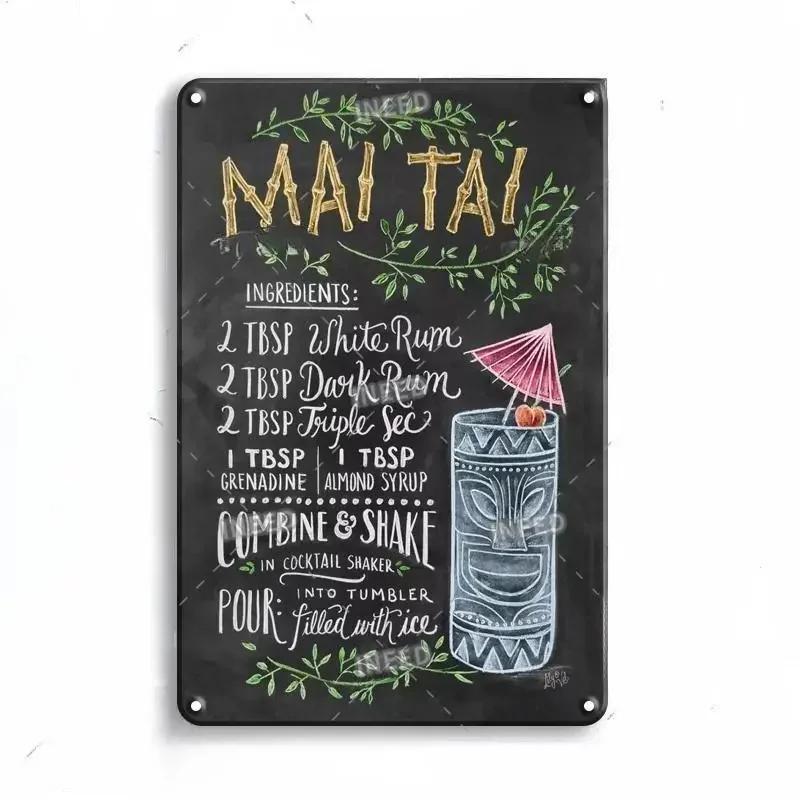 INEED
MAI TAI
INGREDIENTS:
2 TBSP White Rum
2 TBSP Dark Rum
INEED
2 TBSP Triple Sec
1 TBSP | 1 TBSP
GRENADINE | ALMOND SYRUP
COMBINE & SHAKE
INEED
INEED
IN COCKTAIL SHAKER
POUR: INTO TUMBLER
filled with ice
INEED